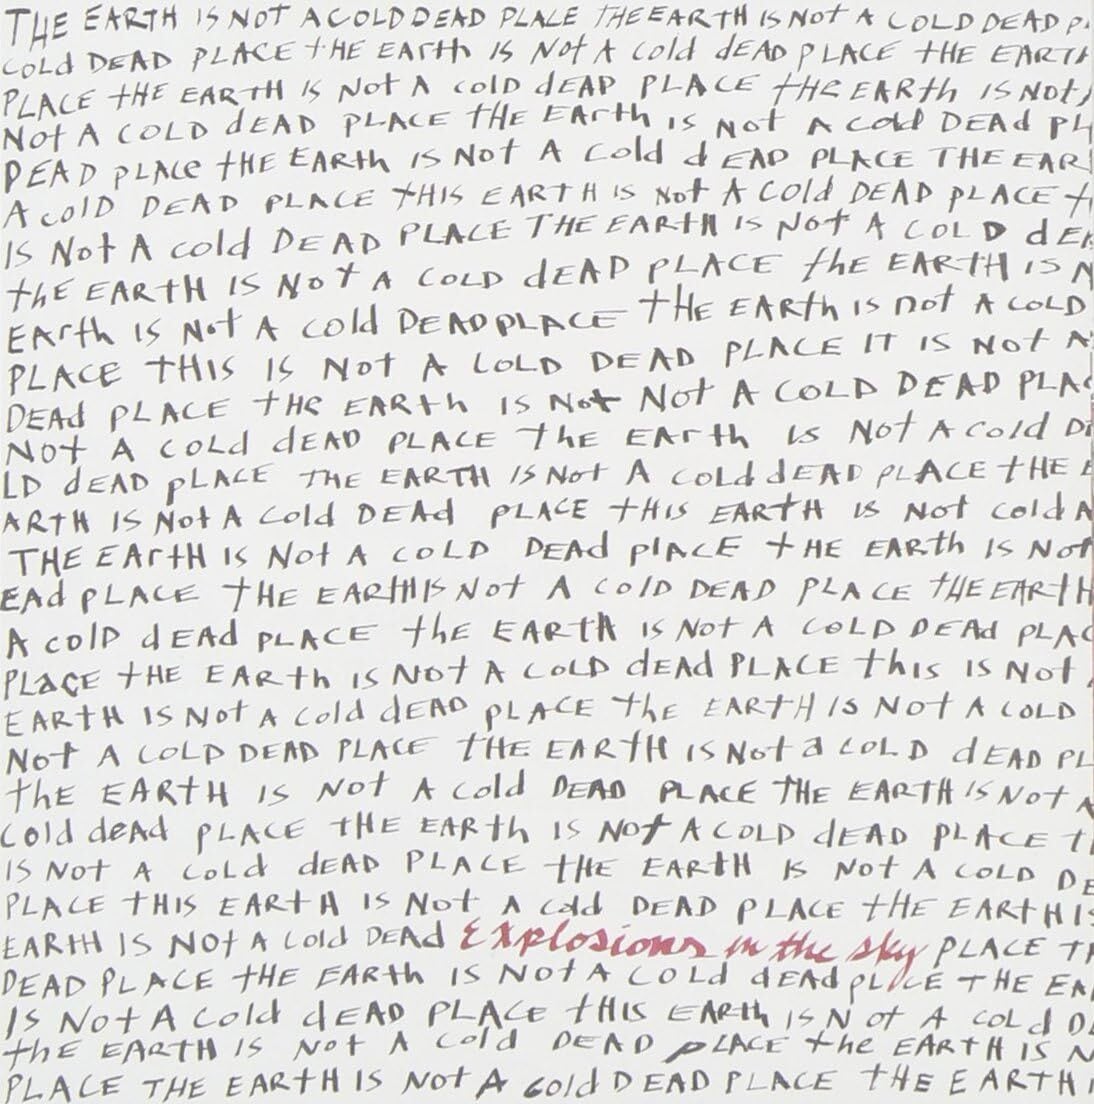 THE EARTH IS NOT A COLD DEAD PLACE THE EARTH IS NOT A COLD DEAD P
COLd DEAD PLACE tHE EARth IS Not A Cold dEAD PLACE tHE EARTH
PLACE tHE EARTH IS Not A colD dEAD PLACE tHE EARth IS Not
Not A COLD dEAD PLACE tHE EARth is Not A Cold DEAd PL
DEAD pLACe tHE EARth IS Not A Cold d EAD PLACE THE EAR
A colD DEAD PLACE tHIS EARTH IS Not A Cold DEAD pLACE t
IS Not A cold DEAD PLACE THE EARtH IS Not A COLD dEA
thE EARtH IS NoT A COLD dEAD PLACE thE EARtH IS N
EArth IS Not A Cold DEAD PLACE tHE EARth is not A COLD
PLACE THIS IS Not A COLD DEAD PLACE IT IS Not A
DEAd PLACE tHe EARth IS Not Not A COLD DEAD PLAC
Not A COLd dEAD PLACE the EARth is Not A Cold D
LD dEAD pLACE THE EARTH IS Not A Cold dEAD PLACE tHE E
ARTH IS Not A Cold DEAd PLACE tHIS EARtH IS Not cold A
THE EARtH IS Not A COLD DEAd plACE tHE EARth IS Not
EAd PLACE tHE EARtH IS Not A COlD DEAD PLACE tHE EARtH
A colD dEAd PLACE thE EARtH IS Not A COLD DEAd PLAC
PLaCE tHE EARth IS Not A COLD dEAd PLACE this IS Not
EARtH IS Not A Cold dEAD pLACE thE EARtH IS Not A COLD
Not A COLD DEAD PLACE tHE EARtH IS Not a COLD dEAD PL
thE EARtH IS Not A Cold DEAD PLACE THE EARtH IS Not A
Cold deAd PLACE tHE EARth IS Not A COLD dEAD PLACE t
IS Not A COLd dEAD PLACE tHE EARtH IS Not A COLD DE
PLACE tHIS EARtH IS Not A Cold DEAD PLACE tHE EARtH IS
EARtH IS Not A Cold DEAD Explosions in the sky PLACE TH
DEAD PLACE tHE EARth IS Not A COLD dEAd pLACE THE EA
IS Not A Cold dEAD PLACE tHIS EARth IS Not A COLd D
thE EARtH IS Not A Cold DEAD pLACE the EARtH IS N
PLACE THE EARtH IS Not A Cold DEAD PLACE tHE EARtH